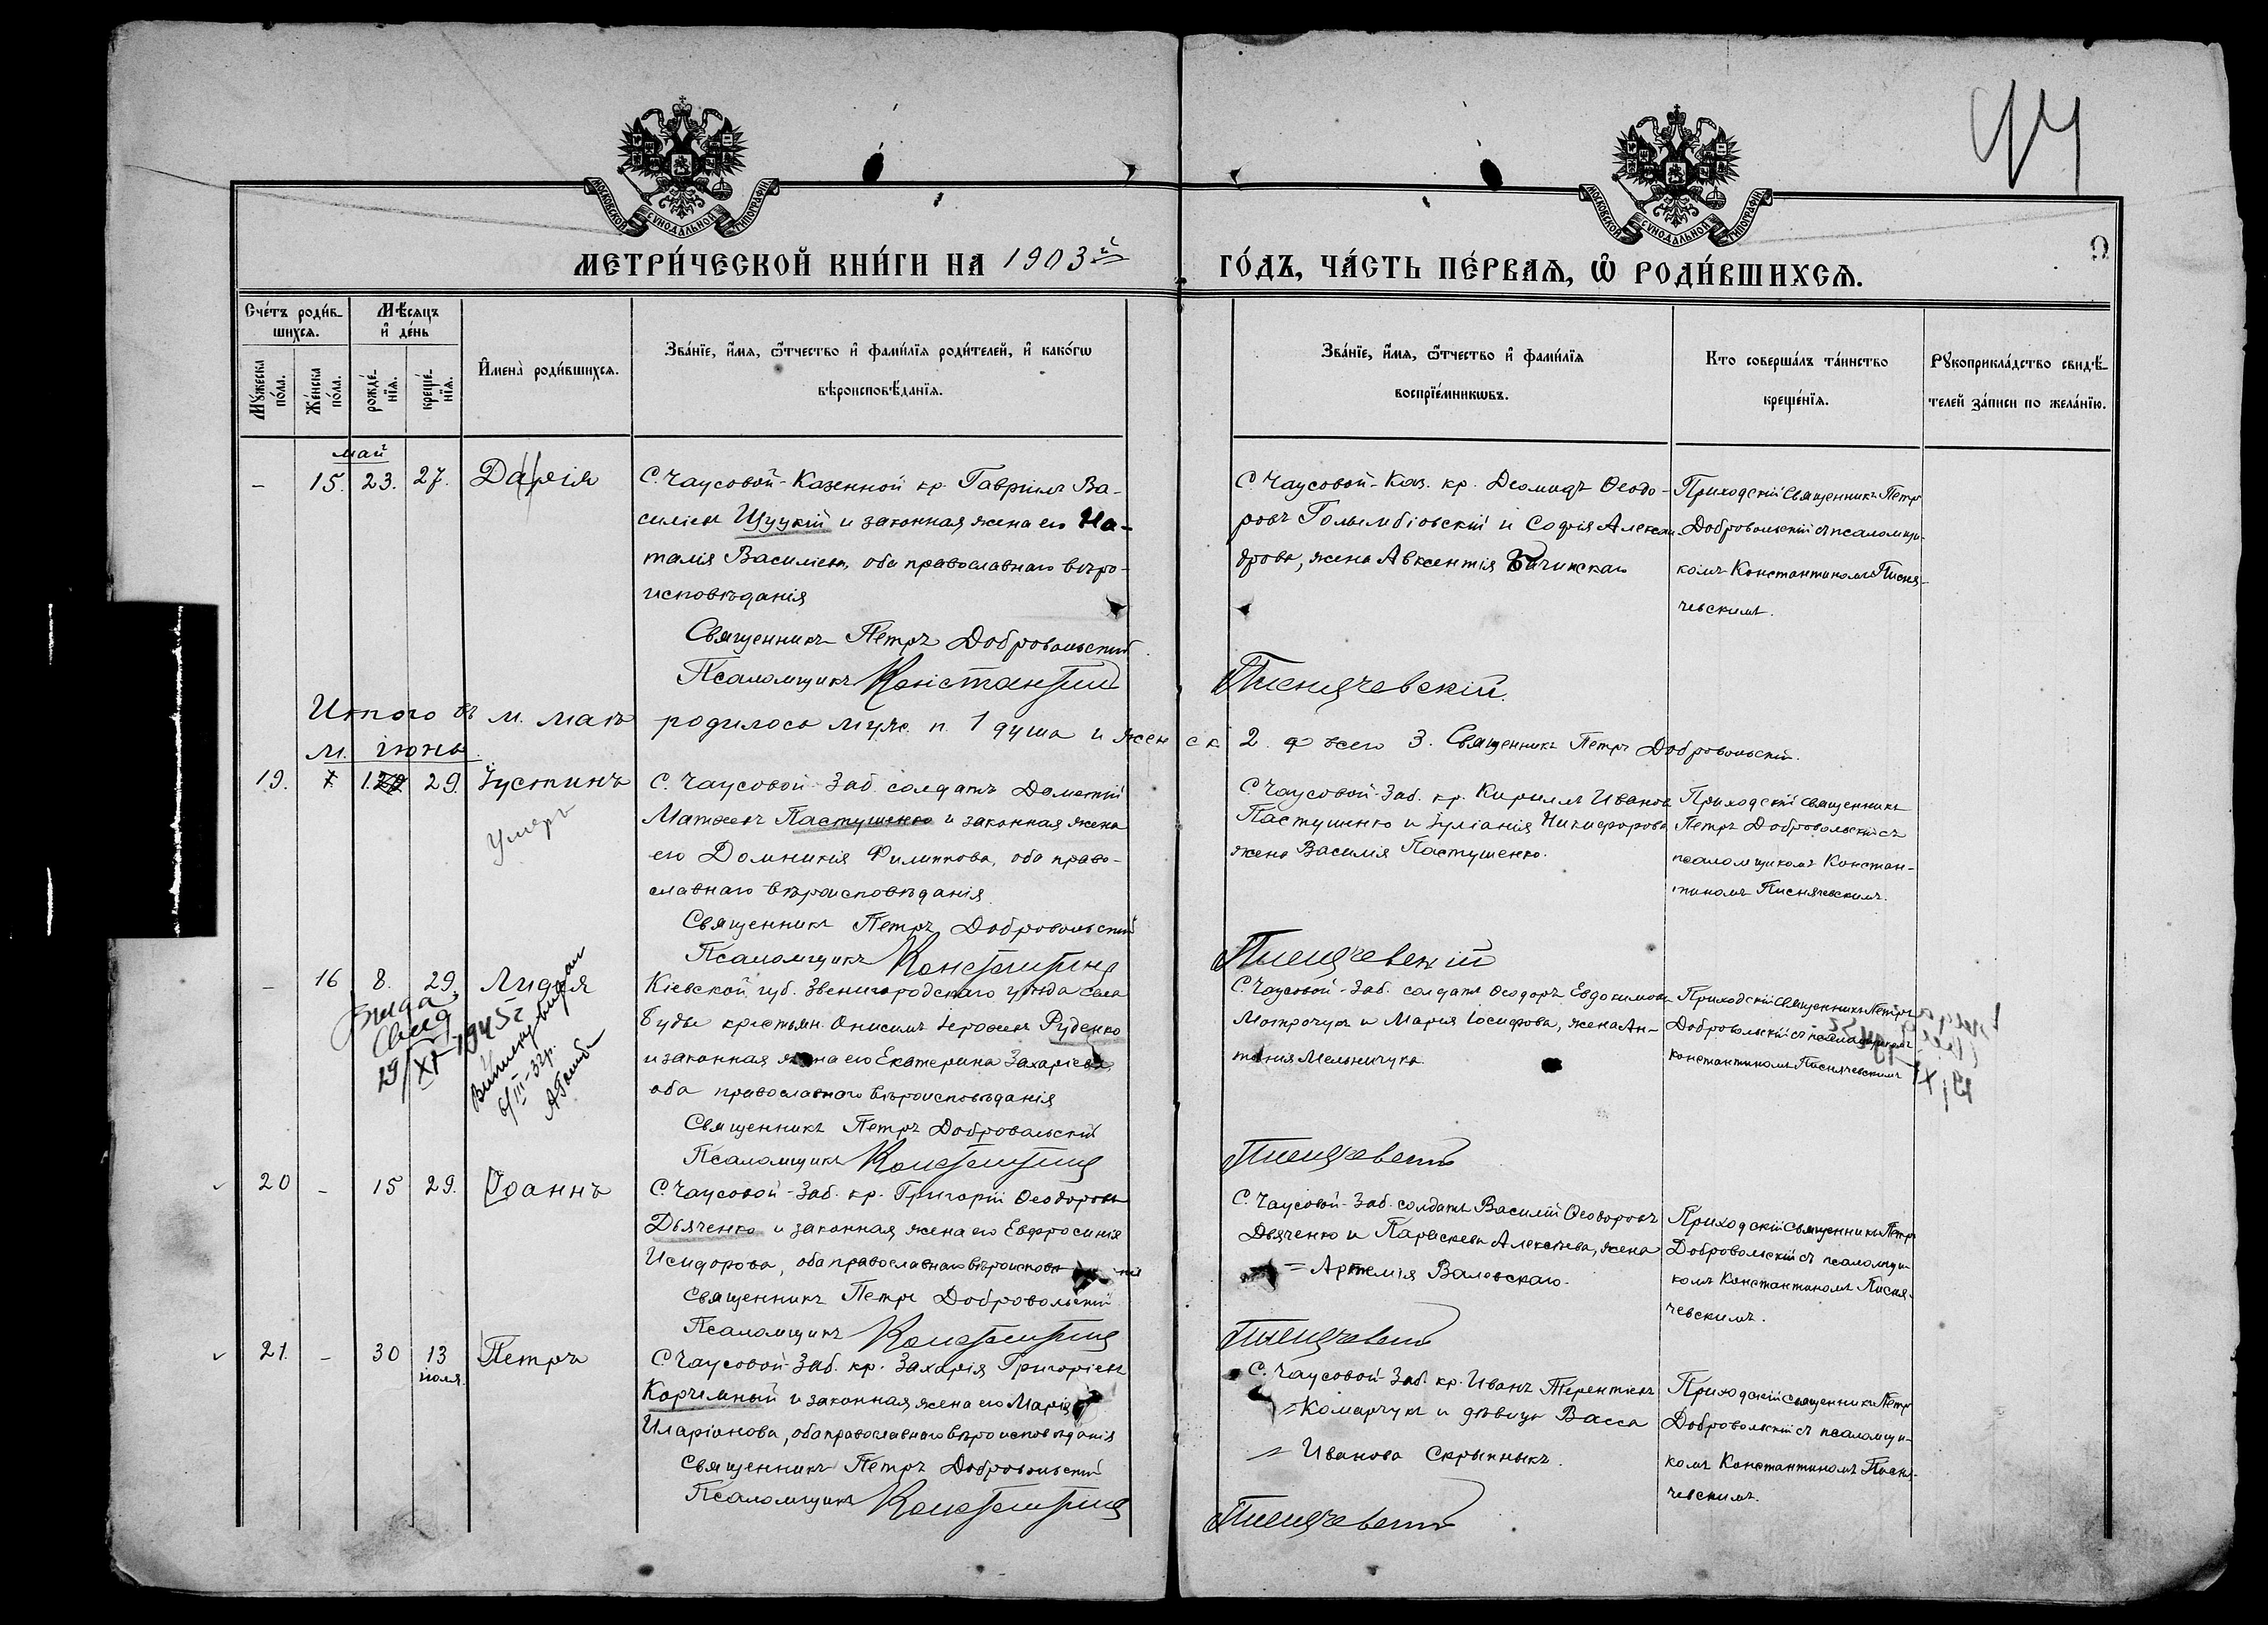 44
МОСКОВСКОЙ СѴНОДАЛЬНОЙ ТИПОГРАФІИ
МОСКОВСКОЙ СѴНОДАЛЬНОЙ ТИПОГРАФІИ
МЕТРИ́ЧЕСКОЙ КНИ́ГИ НА 1903й
ГО́ДЪ, ЧА́СТЬ ПЕ́РВАѦ, Ѽ РОДИ́ВШИХСѦ.
9
Сче́тъ роди́в-
шихсѧ.
Мꙋ́жеска
по́ла.
Же́нска
по́ла.
Мѣ́сѧцъ
и҆ де́нь
рожде́-
нїѧ.
креще́-
нїѧ.
И҆мена̀ роди́вшихсѧ.
Зва́нїе, и҆́мѧ, ѻ҆́тчество и҆ фами́лїѧ роди́телей, и҆ како́гѡ
вѣроисповѣ́данїѧ.
Зва́нїе, и҆́мѧ, ѻ҆́тчество и҆ фами́лїѧ
воспрїе́мникѡвъ.
Кто соверша́лъ та́инство
креще́нїѧ.
Рꙋкоприкла́дство свидѣ́-
телей за́писи по жела́нїю.
май
– 15. 23. 27. Дарія
С. Чаусовой-Казенной кр. Гавріилъ Ва-
силіевъ Щуцкій и законная жена его На-
талія Василіева, оба православнаго вѣро-
исповѣданія
Священникъ Петръ Добровольскій
Псаломщикъ Константинъ
С. Чаусовой-Каз. кр. Деомидъ Ѳеодо-
ровъ Голымбіовскій и Софія Алексан-
дрова, жена Авксентія
Приходскій Священникъ Петръ
Добровольскій съ псаломщи-
комъ Константиномъ Писня-
чевскимъ.
Писнячевскій.
Итого въ м. маѣ родилось муж. п. 1 душа и женск 2. а всего 3. Священникъ Петръ Добровольскій.
м. іюнь
19. 1. 29. Іустинъ
Умеръ
С. Чаусовой-Заб. солдатъ Дометій
Матѳеевъ Пастушенко и законная жена
его Домникія Филиппова, оба право-
славнаго вѣроисповѣданія
Священникъ Петръ Добровольскій
Псаломщикъ Константинъ
С. Чаусовой-Заб. кр. Кириллъ Иванов
Пастушенко и Іуліанія Никифорова
жена Василія Пастушенко.
Приходскій священникъ
Петръ Добровольскій съ
псаломщикомъ Констан-
тиномъ Писнячевскимъ.
Писнячевскій
– 16 8. 29. Лидія
29/XI-1945г
Витяжку видал
6/III-32р.
Кіевской губ. Звенигородскаго уѣзда села
Буды крестьян. Онисимъ Іеровеевъ Руденко
и законная жена его Екатерина Захаріева,
оба православнаго вѣроисповѣданія
Священникъ Петръ Добровольскій
Псаломщикъ Константинъ
С. Чаусовой-Заб. солдатъ Ѳеодоръ Евдокимовъ
Матрочукъ и Марія Іосифова, жена Ан-
тонія Мельничука
Приходскій Священникъ Петръ
Добровольскій съ псаломщикомъ
Константиномъ Писнячевскимъ
Писнячевскій
20 – 15 29. Іоаннъ
С. Чаусовой-Заб. кр. Григорій Ѳеодоровъ
Дьяченко и законная жена его Евфросинія
Исидорова, оба православнаго
Священникъ Петръ Добровольскій
Псаломщикъ Константинъ
С. Чаусовой-Заб. солдатъ Василій Ѳеодоровъ
Дьяченко и Параскева Алексѣева, жена
= Артемія Валевскаго.
Приходскій Священникъ Петръ
Добровольскій съ псаломщи-
комъ Константиномъ Писня-
чевскимъ.
Писнячевскій
21. – 30 13 Петръ
іюля.
С. Чаусовой-Заб. кр. Захарія Григоріевъ
Корчемный и законная жена его Марія
Иларіонова, оба православнаго вѣроисповѣданія
Священникъ Петръ Добровольскій
Псаломщикъ Константинъ
С. Чаусовой-Заб. кр. Иванъ Терентіевъ
= Комарчукъ и дѣвица Васса
= Иванова Скрыпныкъ.
Приходскій священникъ Петръ
Добровольскій съ псаломщи-
комъ Константиномъ Писня-
чевскимъ.
Писнячевскій